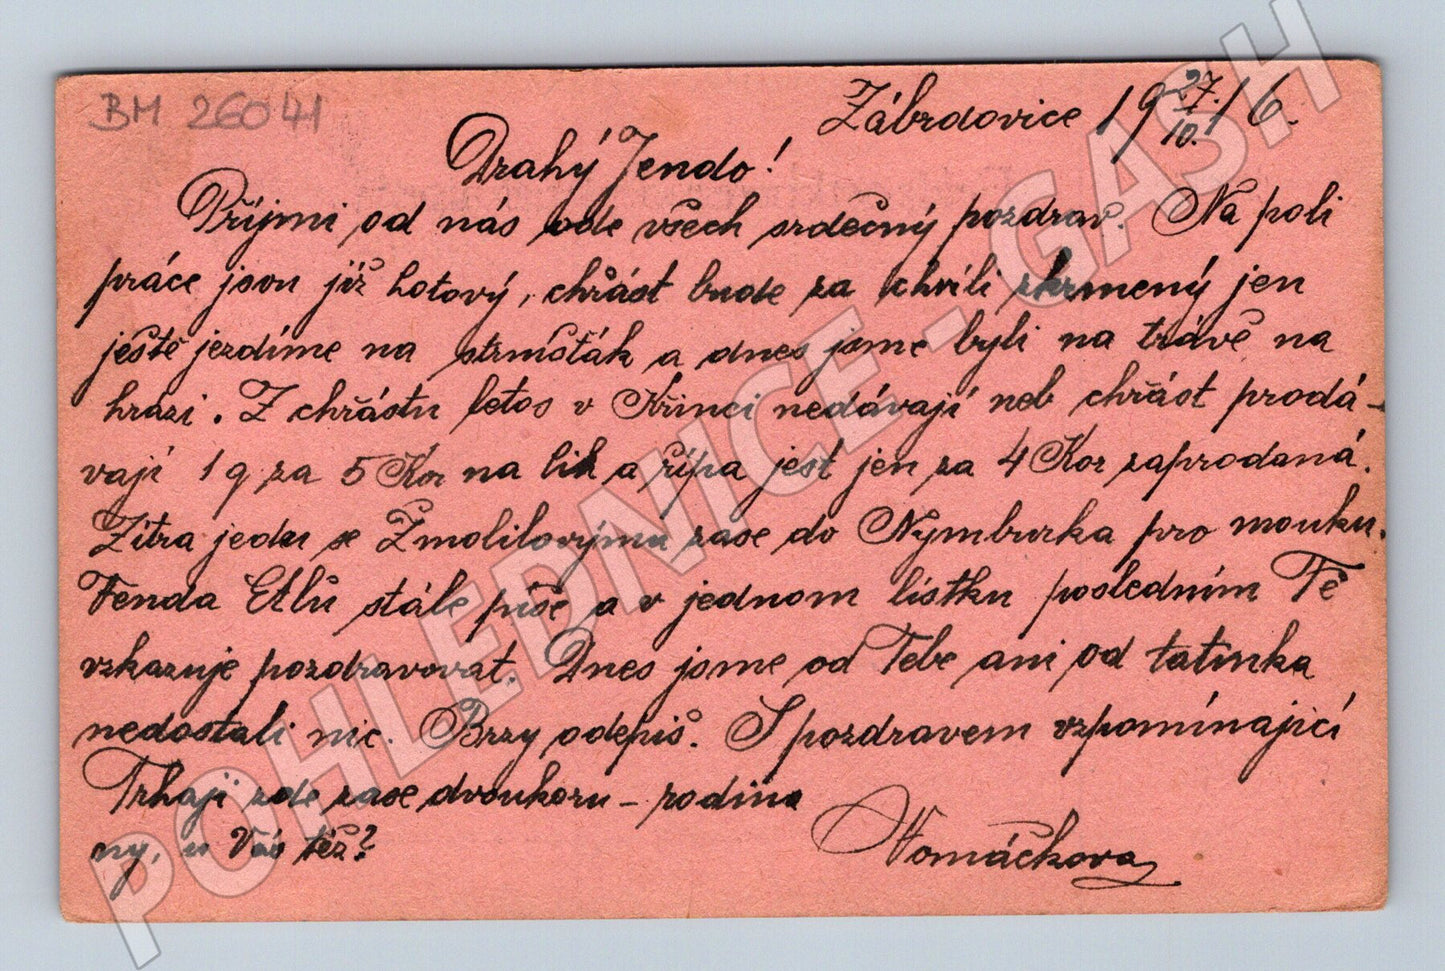 BM 26041
Zábrdovice 19 27./10. 16.
Drahý Jendo!
Přijmi od nás ode všech srdečný pozdrav. Na poli
práce jsou již hotový, chrást bude za chvíli zkrmený jen
ještě jezdíme na strnišťák a dnes jsme byli na trávě na
hrázi. Z chrástu letos v Křinci nedávají neb chrást prodá-
vají 1 q za 5 Kor na lih a řípa jest jen za 4 Kor zaprodaná.
Zítra jedu se Zmolilovýmu zase do Nymburka pro mouku.
Fenda Ellů stále píše a v jednom lístku posledním Tě
vzkazuje pozdravovat. Dnes jsme od Tebe ani od tatínka
nedostali nic. Brzy odepiš. S pozdravem vzpomínající
Trhají zde zase dvoukoru – rodina
ny, u Vás též?
Tomáčkova
POHLEDNICE - GASH